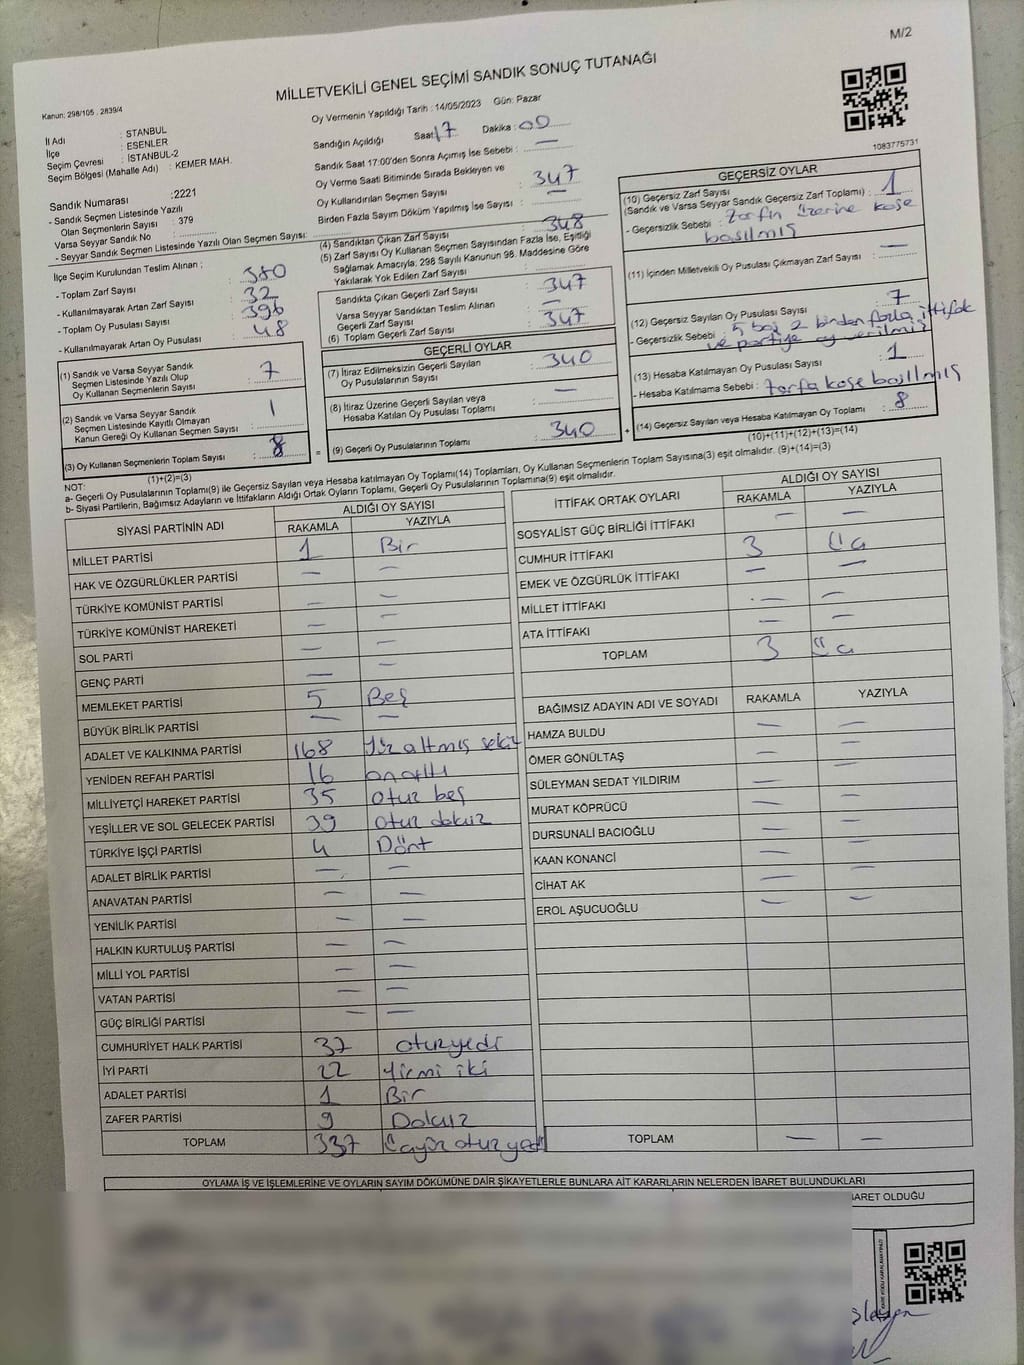 M/2
MİLLETVEKİLİ GENEL SEÇİMİ SANDIK SONUÇ TUTANAĞI
Kanun: 298/105 , 2839/4
Oy Vermenin Yapıldığı Tarih : 14/05/2023 Gün: Pazar
İl Adı : STANBUL
İlçe : ESENLER
Seçim Çevresi : İSTANBUL-2
Seçim Bölgesi (Mahalle Adı) : KEMER MAH.
Sandık Numarası :2221
- Sandık Seçmen Listesinde Yazılı
Olan Seçmenlerin Sayısı : 379
Varsa Seyyar Sandık No :
- Seyyar Sandık Seçmen Listesinde Yazılı Olan Seçmen Sayısı:
İlçe Seçim Kurulundan Teslim Alınan ;
- Toplam Zarf Sayısı : 380
- Kullanılmayarak Artan Zarf Sayısı : 32
- Toplam Oy Pusulası Sayısı : 396
- Kullanılmayarak Artan Oy Pusulası : 48
(1) Sandık ve Varsa Seyyar Sandık
Seçmen Listesinde Yazılı Olup
Oy Kullanan Seçmenlerin Sayısı : 7
(2) Sandık ve Varsa Seyyar Sandık
Seçmen Listesinde Kayıtlı Olmayan
Kanun Gereği Oy Kullanan Seçmen Sayısı : 1
(3) Oy Kullanan Seçmenlerin Toplam Sayısı : 8
(1)+(2)=(3)
Sandığın Açıldığı Saat : 17 Dakika : 00
Sandık Saat 17:00'den Sonra Açımış İse Sebebi : —
Oy Verme Saati Bitiminde Sırada Bekleyen ve
Oy Kullandırılan Seçmen Sayısı : 347
Birden Fazla Sayım Döküm Yapılmış İse Sayısı : —
(4) Sandıktan Çıkan Zarf Sayısı : 348
(5) Zarf Sayısı Oy Kullanan Seçmen Sayısından Fazla İse, Eşitliği
Sağlamak Amacıyla, 298 Sayılı Kanunun 98. Maddesine Göre
Yakılarak Yok Edilen Zarf Sayısı :
Sandıkta Çıkan Geçerli Zarf Sayısı : 347
Varsa Seyyar Sandıktan Teslim Alınan
Geçerli Zarf Sayısı : —
(6) Toplam Geçerli Zarf Sayısı : 347
GEÇERLİ OYLAR
(7) İtiraz Edilmeksizin Geçerli Sayılan
Oy Pusulalarının Sayısı : 340
(8) İtiraz Üzerine Geçerli Sayılan veya
Hesaba Katılan Oy Pusulası Toplamı : —
= (9) Geçerli Oy Pusulalarının Toplamı : 340 +
1083775731
GEÇERSİZ OYLAR
(10) Geçersiz Zarf Sayısı
(Sandık ve Varsa Seyyar Sandık Geçersiz Zarf Toplamı) : 1
- Geçersizlik Sebebi : zarfın üzerine kaşe
basılmış
(11) İçinden Milletvekili Oy Pusulası Çıkmayan Zarf Sayısı : —
(12) Geçersiz Sayılan Oy Pusulası Sayısı : 7
- Geçersizlik Sebebi : 5 boş 2 birden fazla ittifak
ve partiye oy verilmiş
(13) Hesaba Katılmayan Oy Pusulası Sayısı : 1
- Hesaba Katılmama Sebebi : zarfa kaşe basılmış
(14) Geçersiz Sayılan veya Hesaba Katılmayan Oy Toplamı : 8
(10)+(11)+(12)+(13)=(14)
NOT:
a- Geçerli Oy Pusulalarının Toplamı(9) ile Geçersiz Sayılan veya Hesaba katılmayan Oy Toplamı(14) Toplamları, Oy Kullanan Seçmenlerin Toplam Sayısına(3) eşit olmalıdır. (9)+(14)=(3)
b- Siyasi Partilerin, Bağımsız Adayların ve İttifakların Aldığı Ortak Oyların Toplamı, Geçerli Oy Pusulalarının Toplamına(9) eşit olmalıdır.
SİYASİ PARTİNİN ADI ALDIĞI OY SAYISI
RAKAMLA YAZIYLA
MİLLET PARTİSİ 1 Bir
HAK VE ÖZGÜRLÜKLER PARTİSİ — —
TÜRKİYE KOMÜNİST PARTİSİ — —
TÜRKİYE KOMÜNİST HAREKETİ — —
SOL PARTİ — —
GENÇ PARTİ — —
MEMLEKET PARTİSİ 5 Beş
BÜYÜK BİRLİK PARTİSİ — —
ADALET VE KALKINMA PARTİSİ 168 Yüz altmış sekiz
YENİDEN REFAH PARTİSİ 16 onaltı
MİLLİYETÇİ HAREKET PARTİSİ 35 otuz beş
YEŞİLLER VE SOL GELECEK PARTİSİ 39 otuz dokuz
TÜRKİYE İŞÇİ PARTİSİ 4 Dört
ADALET BİRLİK PARTİSİ — —
ANAVATAN PARTİSİ — —
YENİLİK PARTİSİ — —
HALKIN KURTULUŞ PARTİSİ — —
MİLLİ YOL PARTİSİ — —
VATAN PARTİSİ — —
GÜÇ BİRLİĞİ PARTİSİ — —
CUMHURİYET HALK PARTİSİ 37 otuzyedi
İYİ PARTİ 22 Yirmi iki
ADALET PARTİSİ 1 Bir
ZAFER PARTİSİ 9 Dokuz
TOPLAM 337 Üçyüz otuz yedi
İTTİFAK ORTAK OYLARI ALDIĞI OY SAYISI
RAKAMLA YAZIYLA
SOSYALİST GÜÇ BİRLİĞİ İTTİFAKI — —
CUMHUR İTTİFAKI 3 Üç
EMEK VE ÖZGÜRLÜK İTTİFAKI — —
MİLLET İTTİFAKI — —
ATA İTTİFAKI — —
TOPLAM 3 Üç
BAĞIMSIZ ADAYIN ADI VE SOYADI RAKAMLA YAZIYLA
HAMZA BULDU — —
ÖMER GÖNÜLTAŞ — —
SÜLEYMAN SEDAT YILDIRIM — —
MURAT KÖPRÜCÜ — —
DURSUNALİ BACIOĞLU — —
KAAN KONANCİ — —
CİHAT AK — —
EROL AŞUCUOĞLU — —
TOPLAM — —
OYLAMA İŞ VE İŞLEMLERİNE VE OYLARIN SAYIM DÖKÜMÜNE DAİR ŞİKAYETLERLE BUNLARA AİT KARARLARIN NELERDEN İBARET BULUNDUKLARI
BARET OLDUĞU